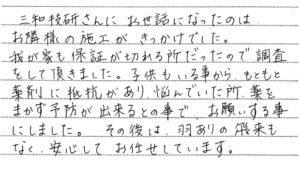 三和技研さんに お世話になったのは
お隣様の施工が きっかけでした。
我が家も保証が切れる所だったので調査
をして頂きました。子供もいる事から、もともと
薬剤に抵抗があり、悩んでいた所、薬を
まかす予防が出来るとの事で、お願いする事
にしました。 その後は、羽ありの飛来も
なく、安心して お任せしています。